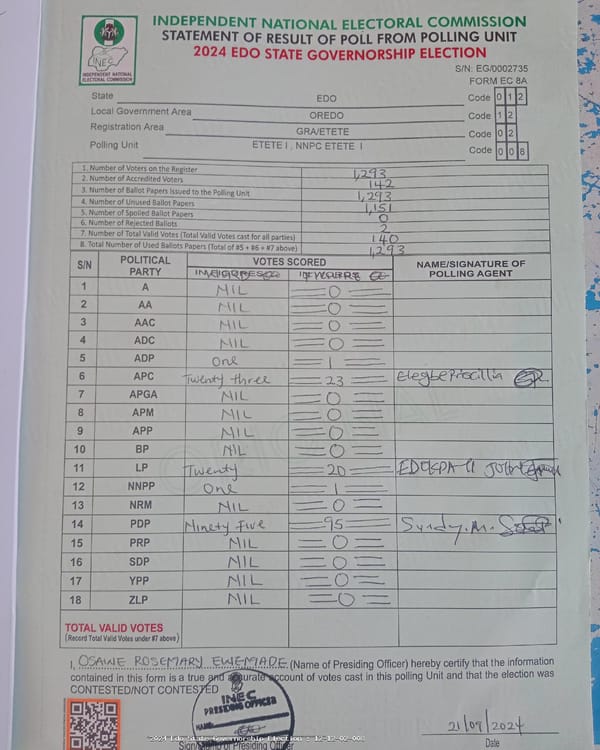 INDEPENDENT NATIONAL ELECTORAL COMMISSION
STATEMENT OF RESULT OF POLL FROM POLLING UNIT
2024 EDO STATE GOVERNORSHIP ELECTION
INEC
INDEPENDENT NATIONAL
ELECTORAL COMMISSION
S/N: EG/0002735
FORM EC 8A
State EDO Code 0 1 2
Local Government Area OREDO Code 1 2
Registration Area GRA/ETETE Code 0 2
Polling Unit ETETE I , NNPC ETETE I Code 0 0 8
1. Number of Voters on the Register 1,293
2. Number of Accredited Voters 142
3. Number of Ballot Papers Issued to the Polling Unit 1,293
4. Number of Unused Ballot Papers 1,151
5. Number of Spoiled Ballot Papers 0
6. Number of Rejected Ballots 2
7. Number of Total Valid Votes (Total Valid Votes cast for all parties) 140
8. Total Number of Used Ballots Papers (Total of #5 + #6 + #7 above) 1,293
S/N POLITICAL PARTY VOTES SCORED NAME/SIGNATURE OF POLLING AGENT
1 A NIL 0
2 AA NIL 0
3 AAC NIL 0
4 ADC NIL 0
5 ADP One 1
6 APC Twenty three 23 Elegbe Priscillia
7 APGA NIL 0
8 APM NIL 0
9 APP NIL 0
10 BP NIL 0
11 LP Twenty 20
12 NNPP One 1
13 NRM NIL 0
14 PDP Ninety five 95 Sunday. M.
15 PRP NIL 0
16 SDP NIL 0
17 YPP NIL 0
18 ZLP NIL 0
TOTAL VALID VOTES
(Record Total Valid Votes under #7 above)
I, OSAWE ROSEMARY EWEMADE (Name of Presiding Officer) hereby certify that the information
contained in this form is a true and accurate account of votes cast in this polling Unit and that the election was
CONTESTED/NOT CONTESTED
INEC
PRESIDING OFFICER
NAME:
2024 Edo State Governorship Election : 12-12-02-008
of Presiding Officer
21/09/2024
Date